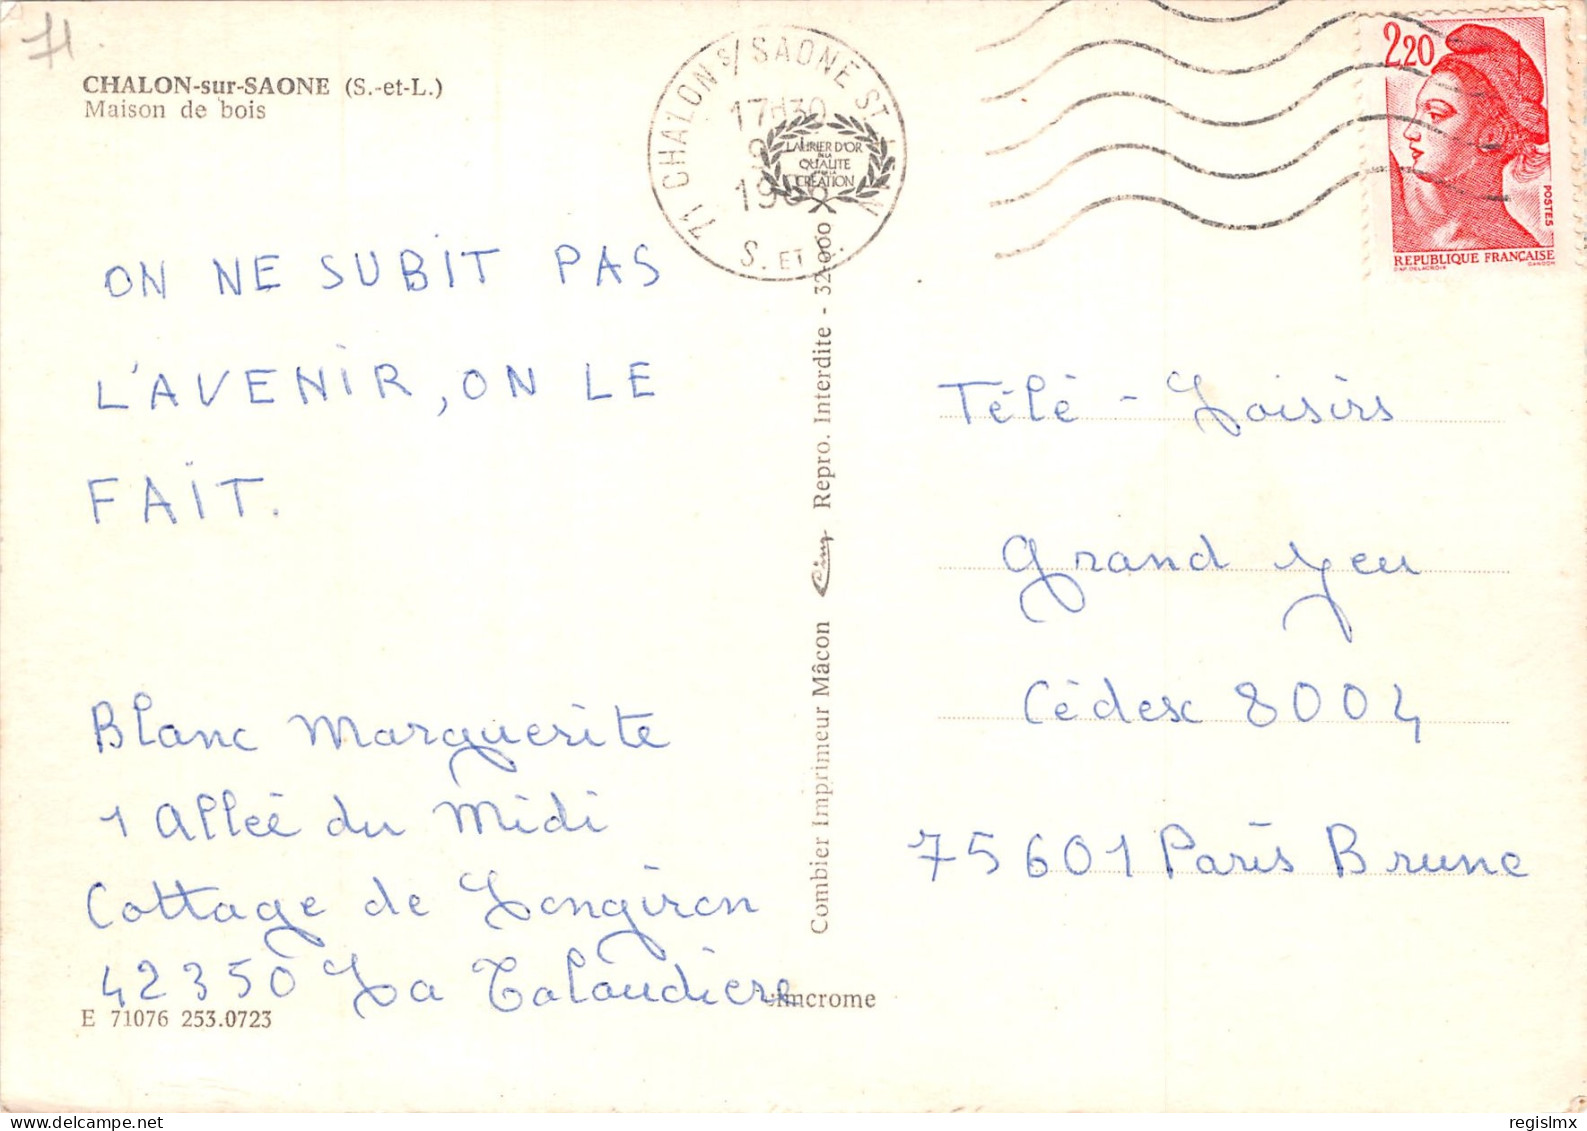 71.
CHALON-sur-SAONE (S.-et-L.)
Maison de bois
71 CHALON S/ SAONE ST
17H30
S. ET
LAURIER D'OR
DE LA
QUALITE
CREATION
2,20
POSTES
REPUBLIQUE FRANÇAISE
D'AP. DELACROIX GANDON
ON NE SUBIT PAS
L'AVENIR, ON LE
FAIT.
Blanc Marguerite
1 Allée du Midi
Cottage de Longiron
42350 La Talaudière
E 71076 253.0723
cimcrome
Combier Imprimeur Mâcon Cim Repro. Interdite - 32-000
Télé - Loisirs
Grand Jeu
Cédex 8004
75601 Paris Brune
regislmx